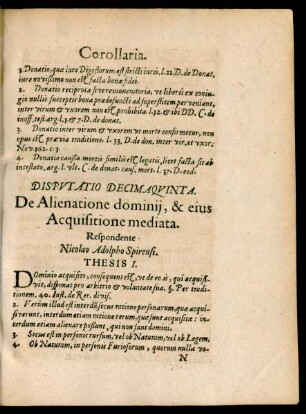 Corollaria.
1. Donatio, quæ iure Digestorum est stricti iuris, l. 22. D. de Donat.
iure novissimo non est, sed facta bonæ fidei.
2. Donatio reciproca sive remuneratoria, ve liberis ex coniu-
gio nullis susceptis bona prædefuncti ad superstitem perveniant,
inter virum & vxorem non est prohibita. l. 32. & ibi DD. C. de
inoff. test. arg. l. 3. & 7. D. de donat.
3. Donatio inter virum & vxorem vt morte confirmetur, non
opus est prævia traditione. l. 33. D. de don. inter vir. et vxor.
Nov. 162. c. 3.
4. Donatio causa mortis similis est legatis, licet facta sit ab
intestato, arg. l. vlt. C. de donat. cau. mort. l. 37. D. eod.
DISPVTATIO DECIMAQVINTA.
De Alienatione dominij, & eius
Acquisitione mediata.
Respondente
Nicolao Adolpho Spirensi.
THESIS I.
Dominio acquisito, consequens est, vt de eo is, qui acquisi-
vit, disponat pro arbitrio & voluntate sua. §. Per tradi-
tionem. 40. Inst. de Rer. divis.
2. Verùm illud est interdū secus ratione personarum, quæ acqui-
siverunt, interdum etiam ratione rerum, quæ sunt acquisitæ: in-
terdum etiam alienare possunt, qui non sunt domini.
3. Secus est in personis rursum, vel ob Naturam, vel ob Legem.
4. Ob Naturam, in personis Furiosorum, quorum nulla vo-
N